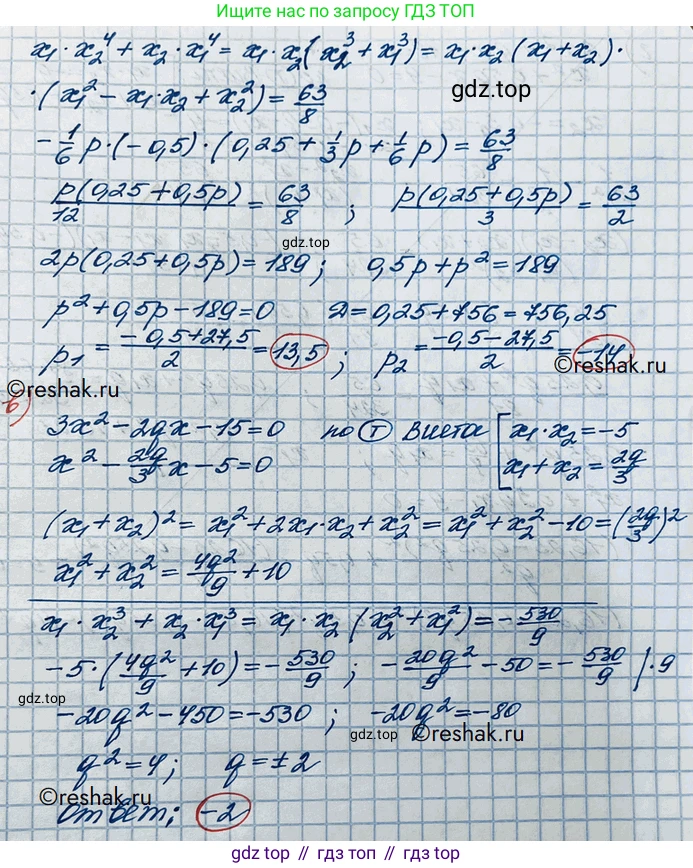 Ищите нас по запросу ГДЗ ТОП
x₁·x₂⁴+x₂·x₁⁴=x₁·x₂(x₂³+x₁³)=x₁·x₂(x₁+x₂)·
·(x₁²-x₁·x₂+x₂²)=63/8
gdz.top
-1/6p·(-0,5)·(0,25+1/3p+1/6p)=63/8
p(0,25+0,5p)/12=63/8; p(0,25+0,5p)/3=63/2
gdz.top
2p(0,25+0,5p)=189; 0,5p+p²=189
p²+0,5p-189=0 D=0,25+756=756,25
p₁=(-0,5+27,5)/2=13,5; p₂=(-0,5-27,5)/2=-14
©reshak.ru ©reshak.ru
б)
3x²-2qx-15=0 по Т Виета [x₁·x₂=-5
x²-2q/3x-5=0 x₁+x₂=2q/3
(x₁+x₂)²=x₁²+2x₁·x₂+x₂²=x₁²+x₂²-10=(2q/3)²
x₁²+x₂²=4q²/9+10
x₁·x₂³+x₂·x₁³=x₁·x₂(x₂²+x₁²)=-530/9
-5·(4q²/9+10)=-530/9; -20q²/9-50=-530/9 |·9
gdz.top
-20q²-450=-530; -20q²=-80
©reshak.ru
q²=4; q=±2
©reshak.ru
ответ; -2
gdz.top // гдз.топ // gdz.top